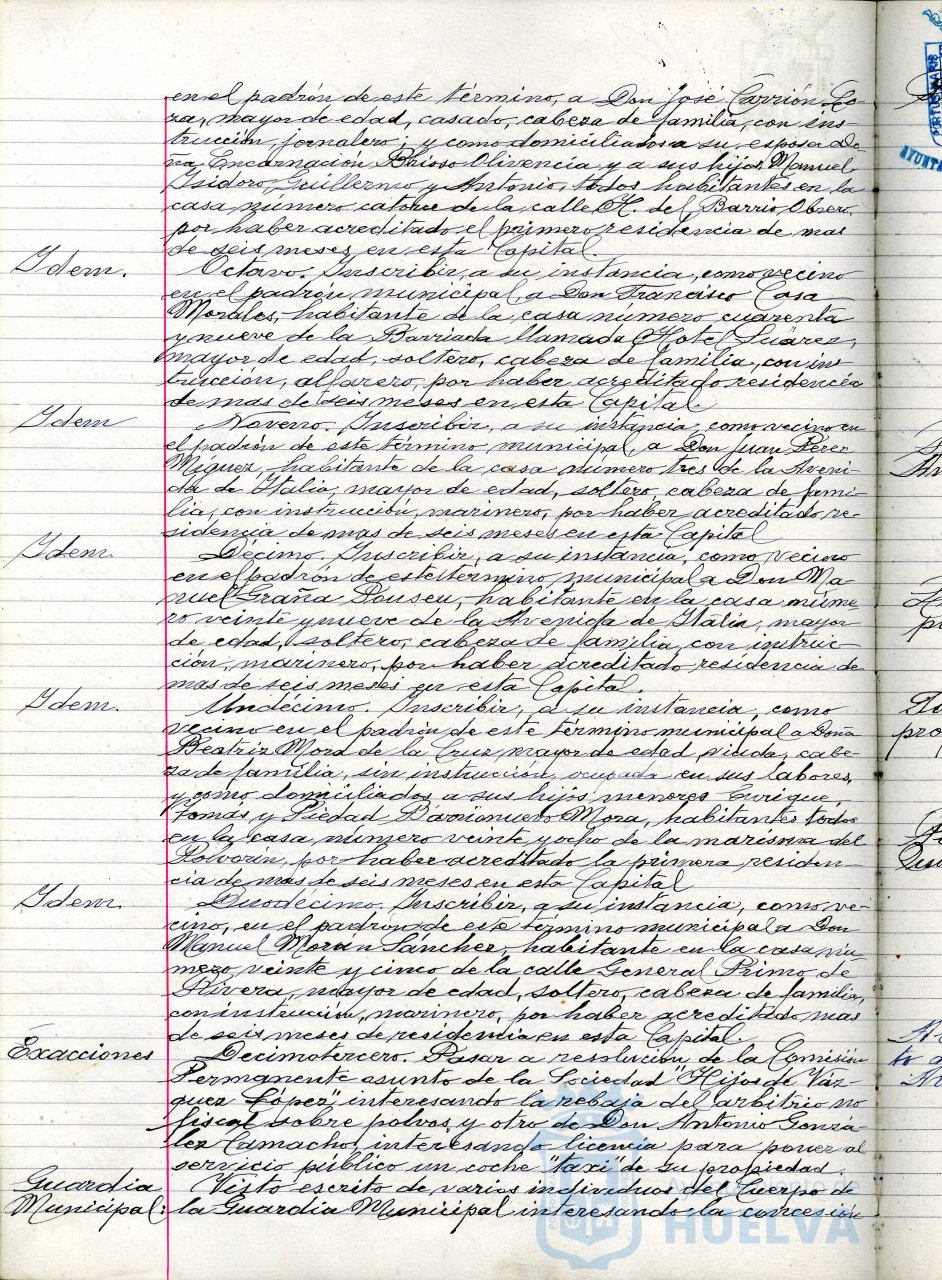 en el padrón de este término, a Don José Carrión Lo-
za, mayor de edad, casado, cabeza de familia, con ins-
trucción, jornalero; y como domiciliados a su esposa Do-
ña Encarnación Brioso Olivencia y a sus hijos Manuel,
Isidoro, Guillermo y Antonio, todos habitantes en la
casa número catorce de la calle H. del Barrio Obrero,
por haber acreditado el primero residencia de mas
de seis meses en esta Capital.
Idem.
Octavo. Inscribir, a su instancia, como vecino
en el padrón municipal, a Don Francisco Casa
Morales, habitante de la casa número cuarenta
y nueve de la Barriada llamada Hotel Suárez,
mayor de edad, soltero, cabeza de familia, con ins-
trucción, alfarero, por haber acreditado residencia
de mas de seis meses en esta Capital.
Idem
Noveno. Inscribir, a su instancia, como vecino en
el padrón de este término municipal, a Don Juan Pérez
Miguez, habitante de la casa número tres de la Aveni-
da de Italia, mayor de edad, soltero, cabeza de fami-
lia, con instrucción, marinero, por haber acreditado re-
sidencia de mas de seis meses en esta Capital
Idem.
Décimo. Inscribir, a su instancia, como vecino
en el padrón de este término municipal a Don Ma-
nuel Graña Pouseu, habitante en la casa núme-
ro veinte y nueve de la Avenida de Italia, mayor
de edad, soltero, cabeza de familia, con instruc-
ción, marinero, por haber acreditado residencia de
mas de seis meses en esta Capital.
Idem.
Undécimo. Inscribir, a su instancia, como
vecino en el padrón de este término municipal a Doña
Beatriz Mora de la Cruz mayor de edad, viuda, cabe-
za de família, sin instrucción, ocupada en sus labores,
y como domiciliados, a sus hijos menores Enrique,
Tomás y Piedad Barrionuevo Mora, habitantes todos
en la casa número veinte y ocho de la marisma del
Polvorín, por haber acreditado la primera residen-
cia de mas de seis meses en esta Capital
Idem.
Duodécimo. Inscribir, a su instancia, como ve-
cino, en el padrón de este término municipal a Don
Manuel Morán Sánchez, habitante en la casa nú-
mero veinte y cinco de la calle General Primo de
Rivera, mayor de edad, soltero, cabeza de familia,
con instrucción, marinero, por haber acreditado mas
de seis meses de residencia en esta Capital.
Exacciones
Decimotercero. Pasar a resolución de la Comisión
Permanente asunto de la Sociedad "Hijos de Váz-
quez López" interesando la rebaja del arbitrio no
fiscal sobre polvos, y otro de Don Antonio Gonzá-
lez Camacho, interesando licencia para poner al
servicio público un coche "taxi" de su propiedad.
Guardia
Municipal:
Visto escrito de varios individuos del Cuerpo de
la Guardia Municipal interesando la concesión
Ayuntamiento de
HUELVA